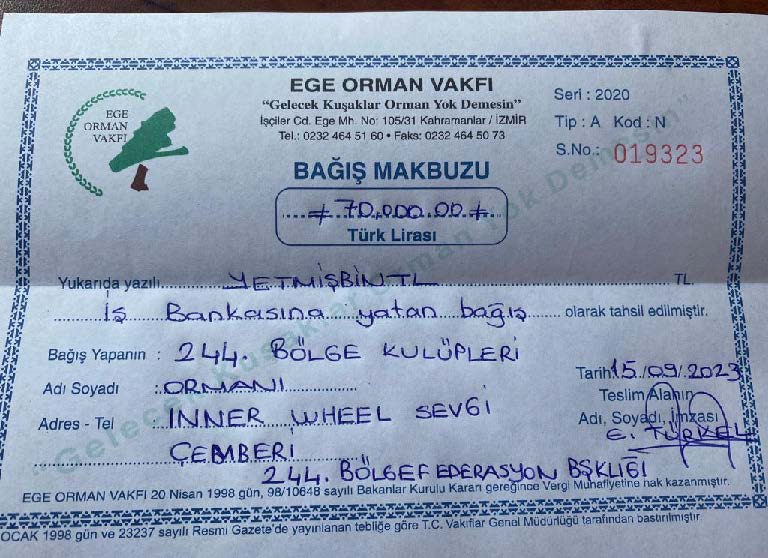 EGE
ORMAN
VAKFI
EGE ORMAN VAKFI
“Gelecek Kuşaklar Orman Yok Demesin”
İşçiler Cd. Ege Mh. No: 105/31 Kahramanlar / İZMİR
Tel.: 0232 464 51 60 • Faks: 0232 464 50 73
Seri : 2020
Tip : A Kod : N
S.No.: 019323
BAĞIŞ MAKBUZU
70,000.00
Türk Lirası
Yukarıda yazılı YETMİŞBİN TL TL.
İş Bankasına yatan bağış olarak tahsil edilmiştir.
Bağış Yapanın : 244. BÖLGE KULÜPLERİ
Adı Soyadı : ORMANI
Adres - Tel : INNER WHEEL SEVGİ
ÇEMBERİ
244. BÖLGE FEDERASYON BŞKLIĞI
Tarih 15/09/2023
Teslim Alanın
Adı, Soyadı, İmzası
E. TÜRKEL
EGE ORMAN VAKFI 20 Nisan 1998 gün, 98/10648 sayılı Bakanlar Kurulu Kararı gereğince Vergi Muhafiyetine hak kazanmıştır.
OCAK 1998 gün ve 23237 sayılı Resmi Gazete'de yayınlanan tebliğe göre T.C. Vakıflar Genel Müdürlüğü tarafından bastırılmıştır.
“Gelecek Kuşaklar Orman Yok Demesin”